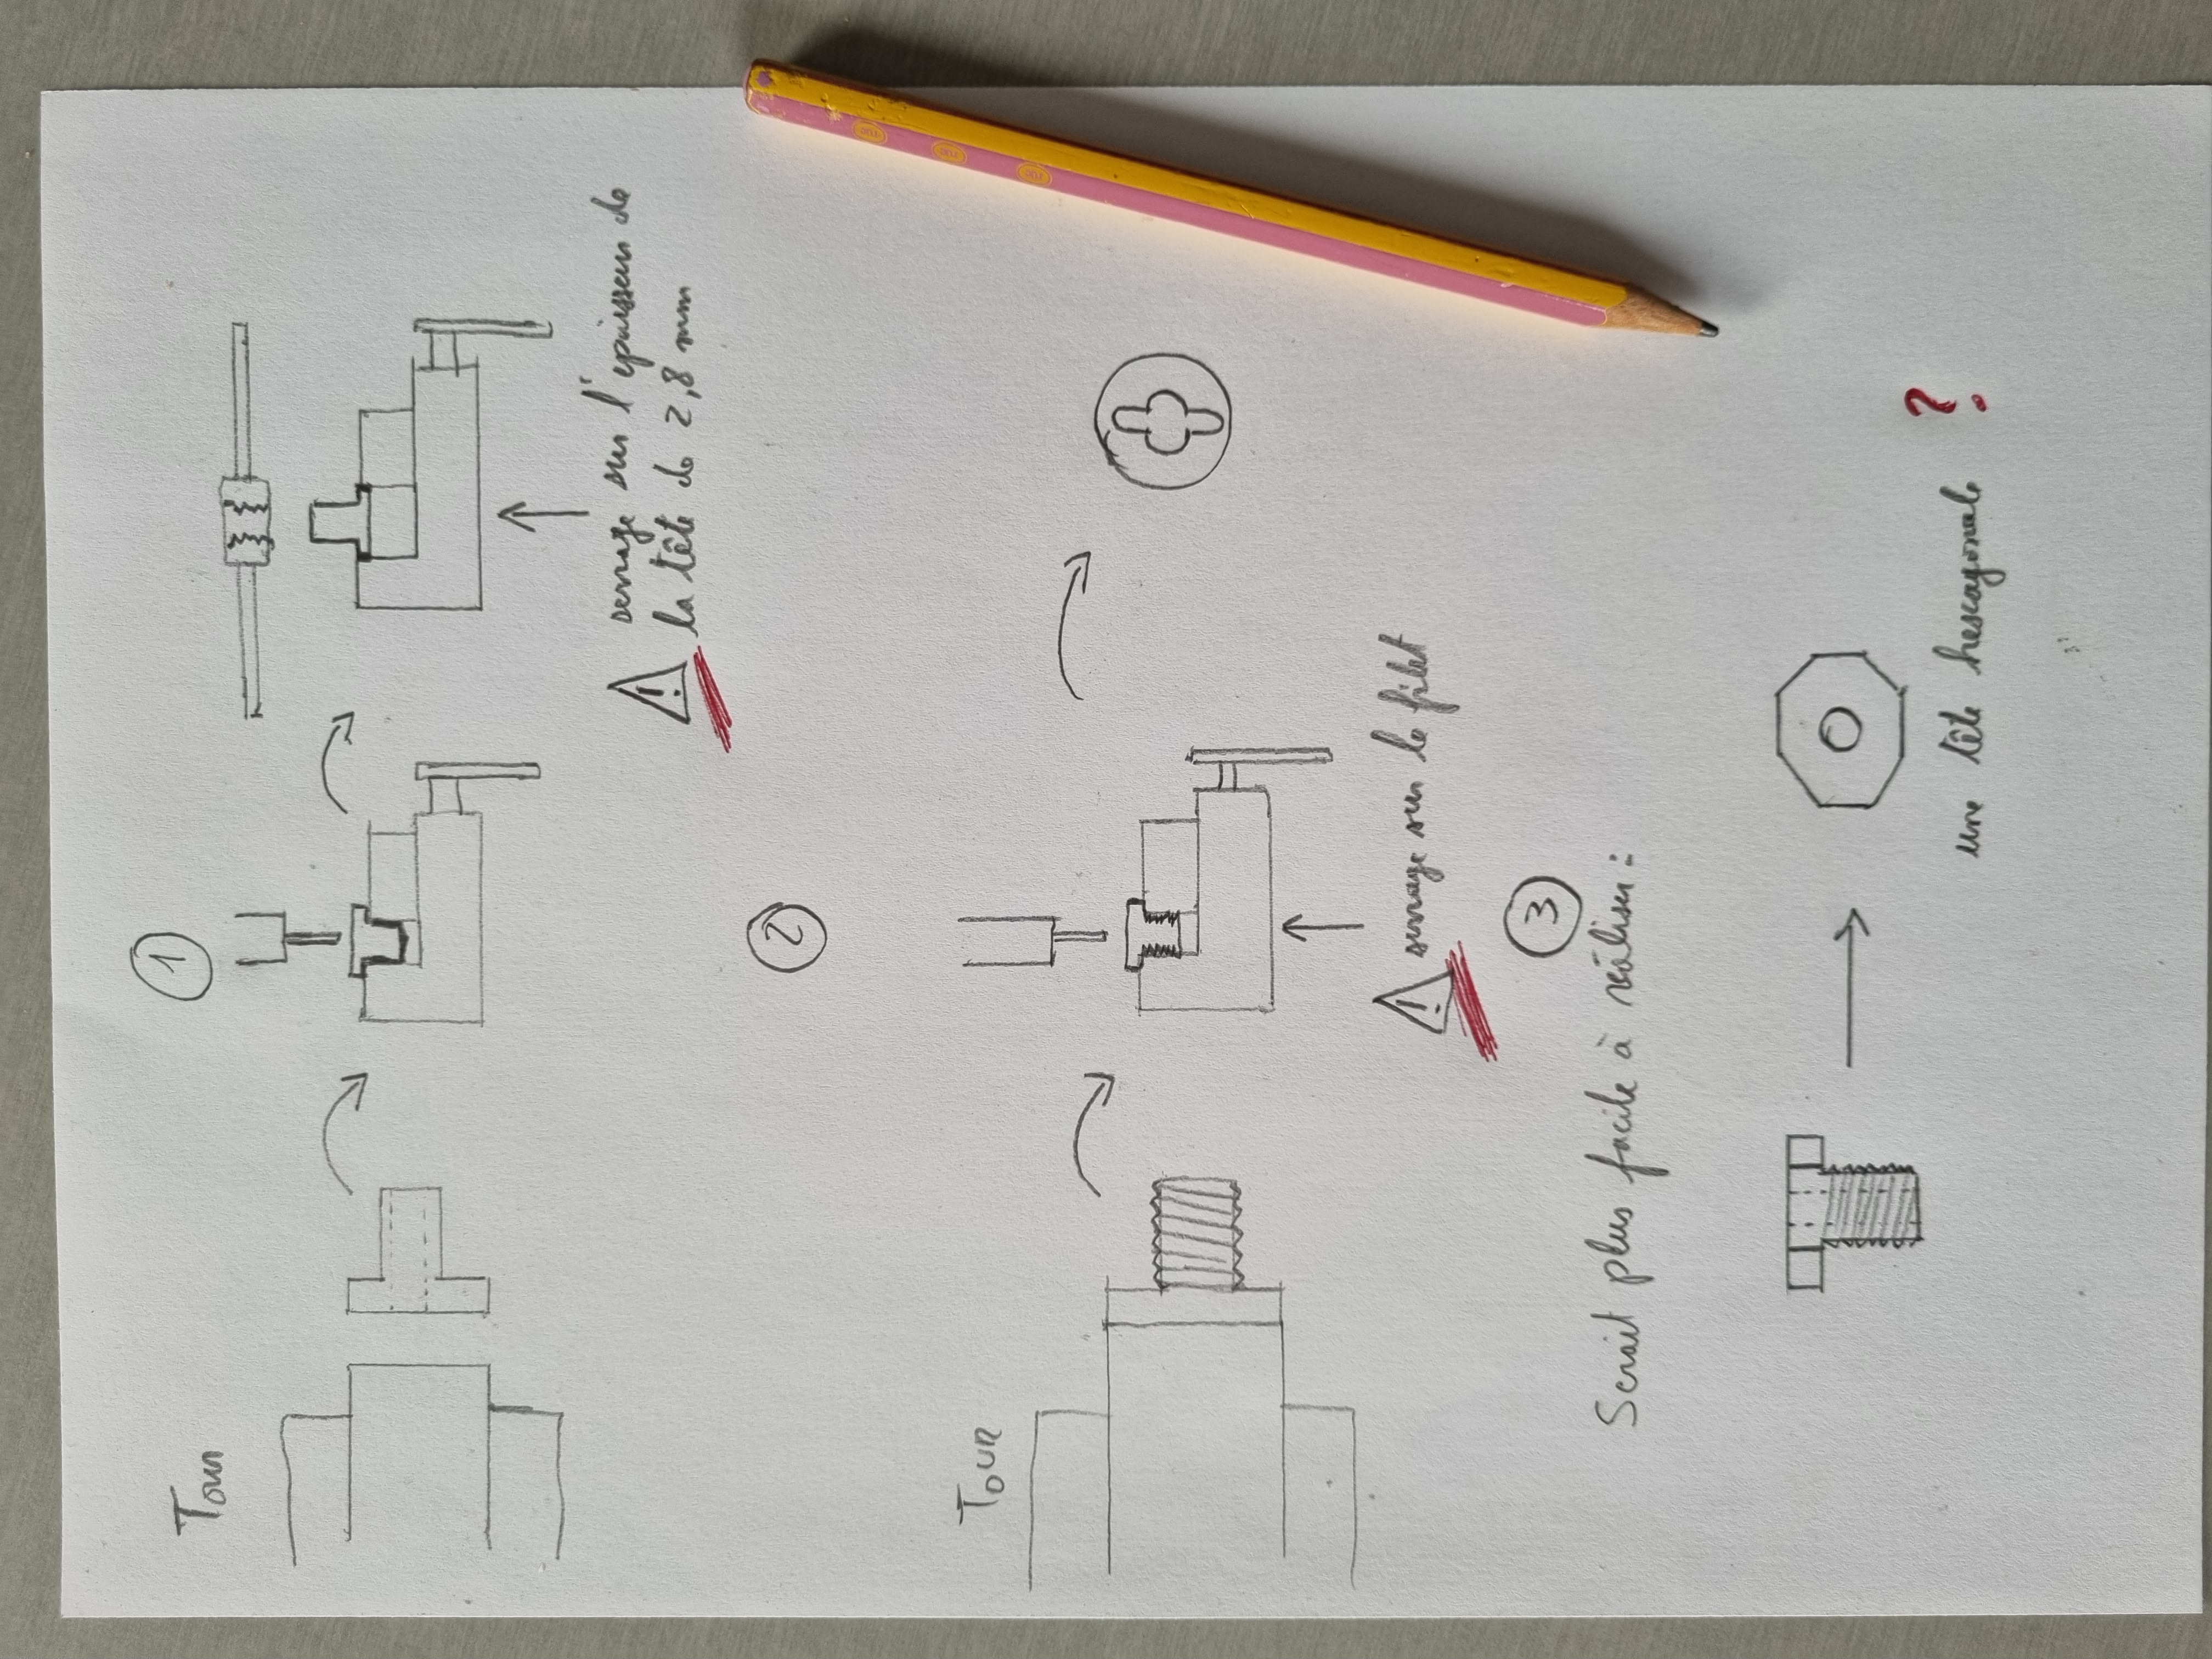 1
Tour
! serrage sur l'epaisseur de
la tête de 2,8 mm
2
TOUR
! serrage sur le filet
3
Serait plus facile à réaliser :
une tête hescagonale ?